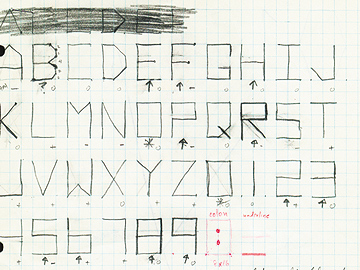 A B C D E F G H I J
K L M N O P Q R S T
U V W X Y Z 0 1 2 3
4 5 6 7 8 9 colon underline